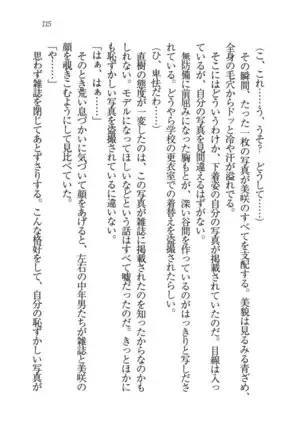 115
(こ、これ……う、うそ？　どうして……)
その瞬間、たった一枚の写真が美咲のすべてを支配する。美貌は見るみる青ざめ、
全身の毛穴からドッと冷や汗が溢れでる。
そこにはどういうわけか、下着姿の自分の写真が掲載されていた。目線は入っ
ているが、自分の写真を見間違えるはずがない。
無防備に前屈みになった胸もとが、深い谷間を作っているのがはっきりと写しださ
れている。どうやら学校の更衣室での着替えを盗撮されたらしい。
(ひ、卑怯だわ……)
直樹の態度が一変したのは、この写真が雑誌に掲載されたのを知ったからなのかも
しれない。モデルになってほしいなどという話はすべて嘘だったのだ。きっとほかに
も恥ずかしい写真を盗撮されているに違いない。
「はぁ、はぁ……」
そのとき荒い息づかいに気づいて顔をあげると、左右の中年男たちが雑誌と美咲の
顔を覗きこむようにして見比べていた。
「や……」
思わず雑誌を閉じてあとずさりする。こんな格好をして、自分の恥ずかしい写真が